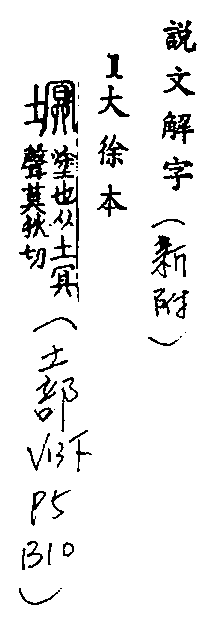 説文解字(新附)
1大徐本
塓 塗也从土冥
聲莫狄切
(土部V13下P5B10)